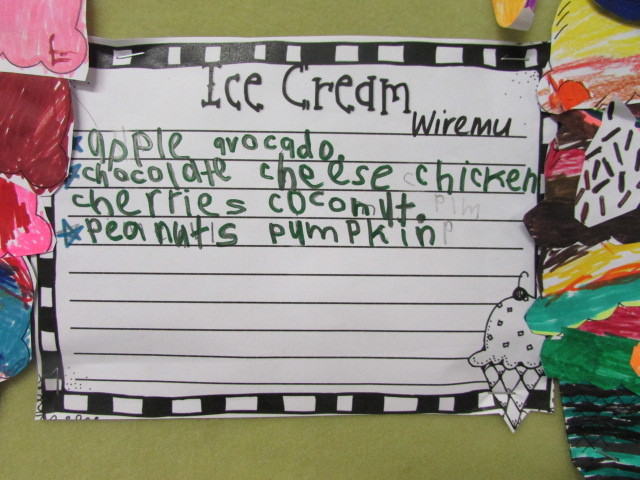 Ice Cream
Wiremu
apple avocado.
chocolate cheese chicken
cherries coconut.
peanuts pumpkin